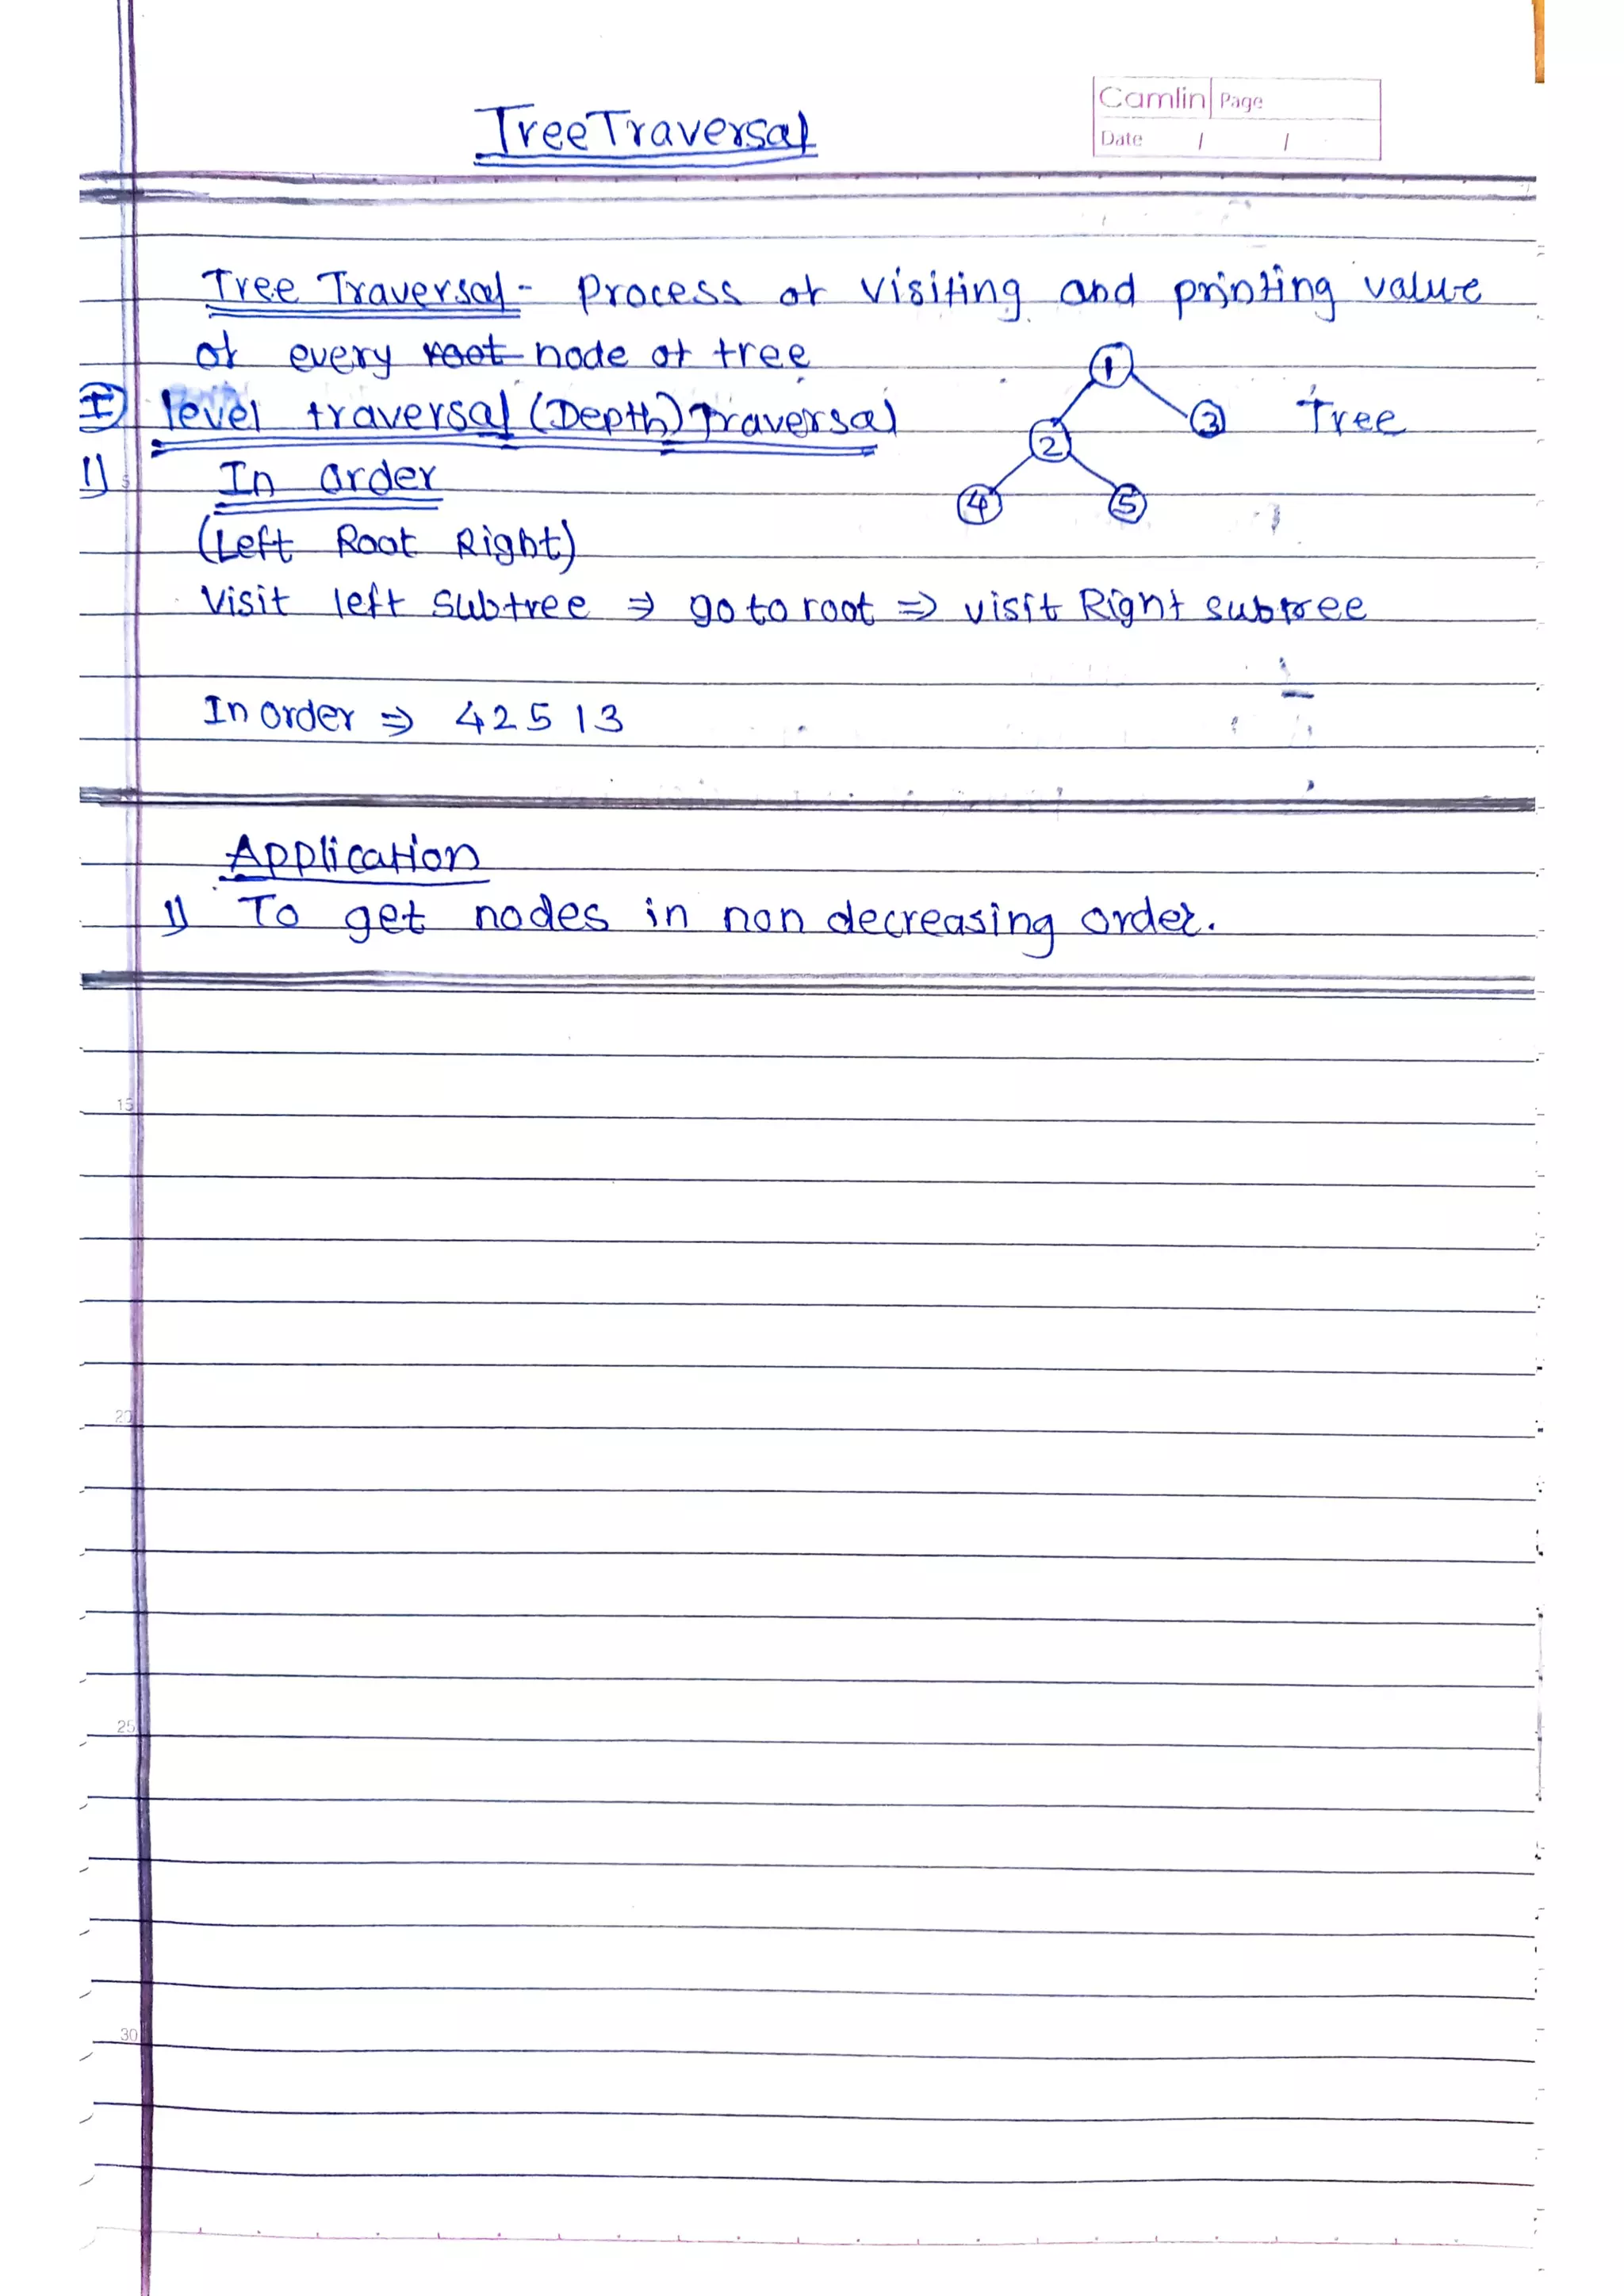 Tree Traversal
Camlin Page
Date / /
Tree Traversal - Process of visiting and printing value
of every root node of tree
I) level traversal (Depth) Traversal
1) In order
(Left Root Right)
Visit left subtree ⇒ go to root ⇒ visit Right subtree
1
2 3 Tree
4 5
In order ⇒ 4 2 5 1 3
Application
1) To get nodes in non decreasing order.
15
20
25
30